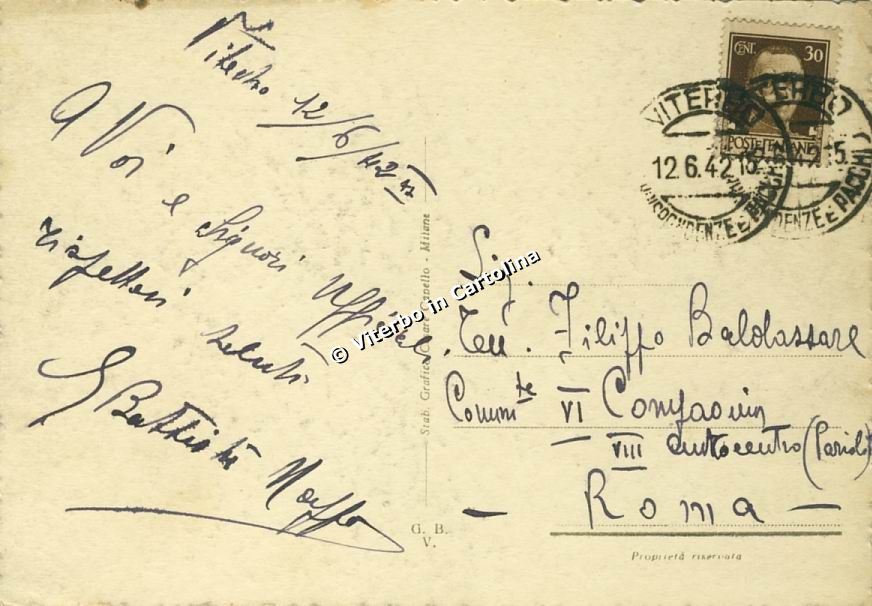 Viterbo 12/6/42 XX
A Voi e Signori Ufficiali
rispettosi saluti
G Battista
CENT. 30
POSTE ITALIANE
VITERBO
12.6.42 15
CORRISPONDENZE E PACCHI
VITERBO
CORRISPONDENZE E PACCHI
Stab. Grafico Cesare Capello - Milano
G. B.
V.
© Viterbo in Cartolina
Sig.
Ten. Filippo Baldassare
Comm.te VI Compagnia
VIII autocentro (Parioli)
- Roma -
Proprietà riservata